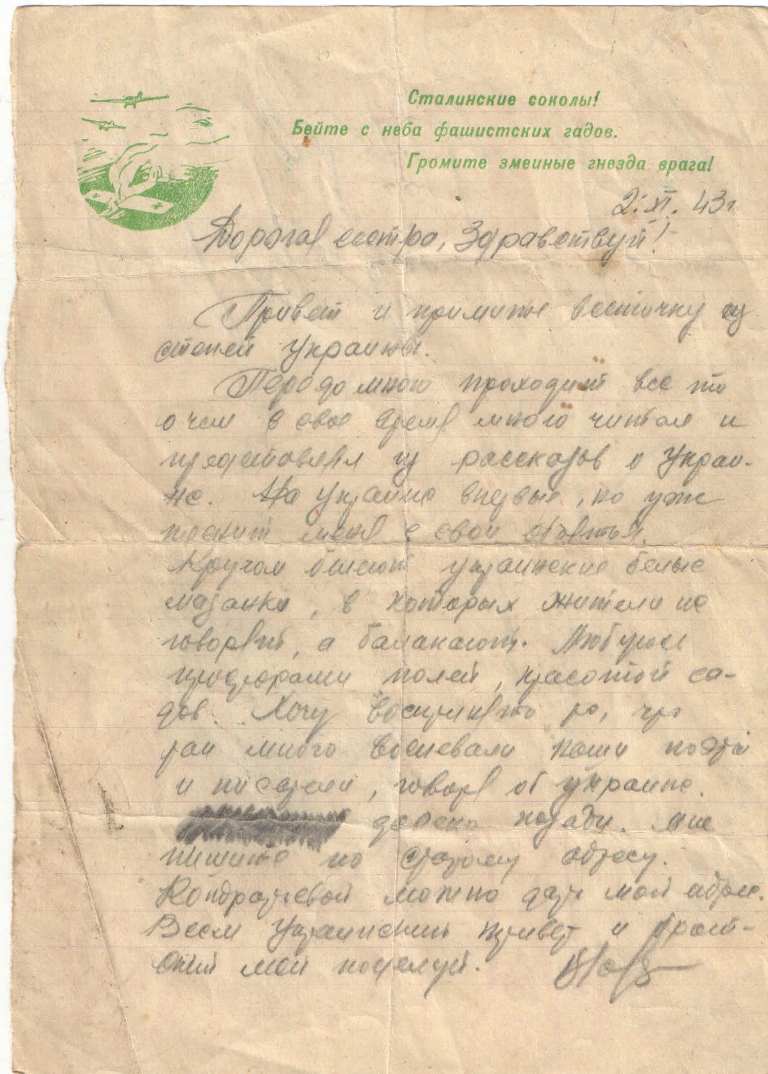 Сталинские соколы!
Бейте с неба фашистских гадов.
Громите змеиные гнезда врага!
2.XI.43г
Дорогая сестра, Здравствуй!
Привет и примите весточку из
степей Украины.
Передо мною проходит все то
о чем в свое время много читал и
представлял из рассказов о Украи-
не. На Украине впервые, но уже
меня в свои объятья.
Кругом белые
мазанки, в которых жители не
говорят, а балакают. Любуюсь
просторами полей, красотой са-
дов. Хочу то, что
так много воспевали наши поэты
и писатели, говоря об Украине.
далеко позади. Мне
пишите по старому адресу.
Кондратьевой можно дать мой адрес.
Всем привет и брат-
ский мой поцелуй.